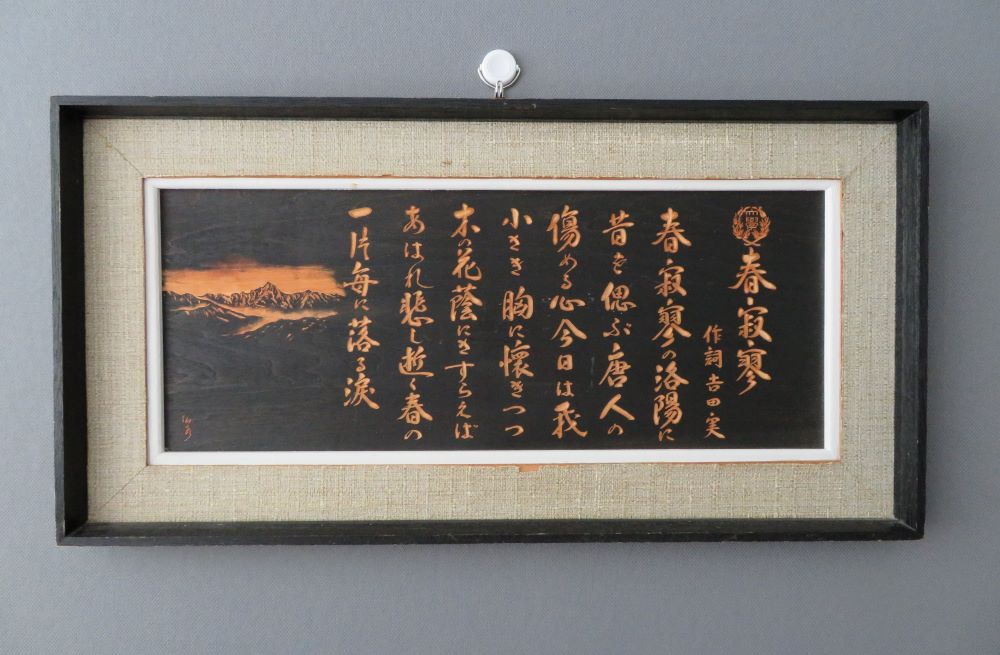 春寂寥
作詞 吉田 実
春寂寥の洛陽に
昔を偲ぶ唐人の
傷める心今日は我
小さき胸に懐きつつ
木の花蔭にさすらえば
あはれ悲し逝く春の
一片毎に落る涙